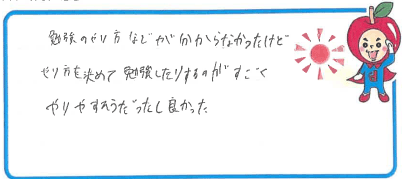 勉強のやり方などが分からなかったけど
やり方を決めて勉強したりするのがすごく
やりやすそうだったし良かった